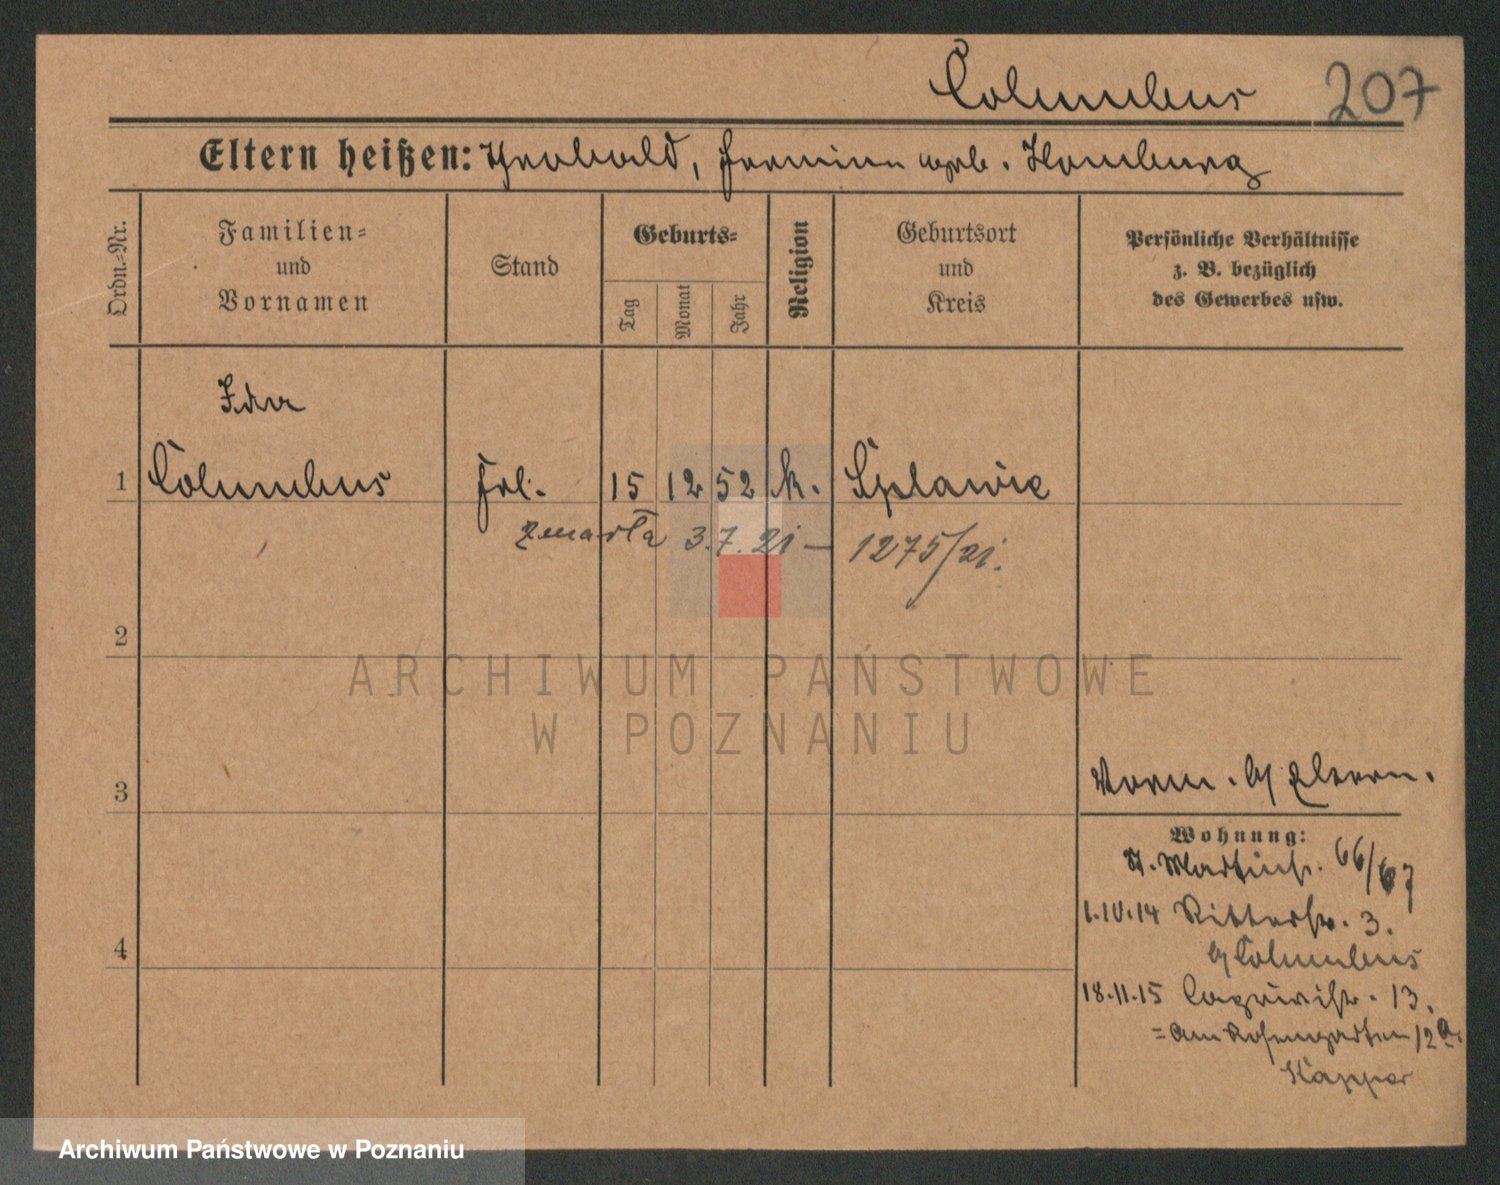 Columbus 207
Eltern heißen: Theobald, geb. Homburg
Ordn.-Nr.
Familien-
und
Vornamen
Stand
Geburts-
Tag
Monat
Jahr
Religion
Geburtsort
und
Kreis
Persönliche Verhältnisse
z. B. bezüglich
des Gewerbes usw.
Ida
1 Columbus Frl. 15 12 52 k. Splawie
zmarła 3.7.21 – 1275/21.
2
3
4
Vorm. b/ Eltern.
Wohnung:
St. Martinstr. 66/67
1.10.14 Ritterstr. 3.
b/ Columbus
18.11.15 13.
= Am Rosengarten 12a.
Kapper
ARCHIWUM PAŃSTWOWE
W POZNANIU
Archiwum Państwowe w Poznaniu